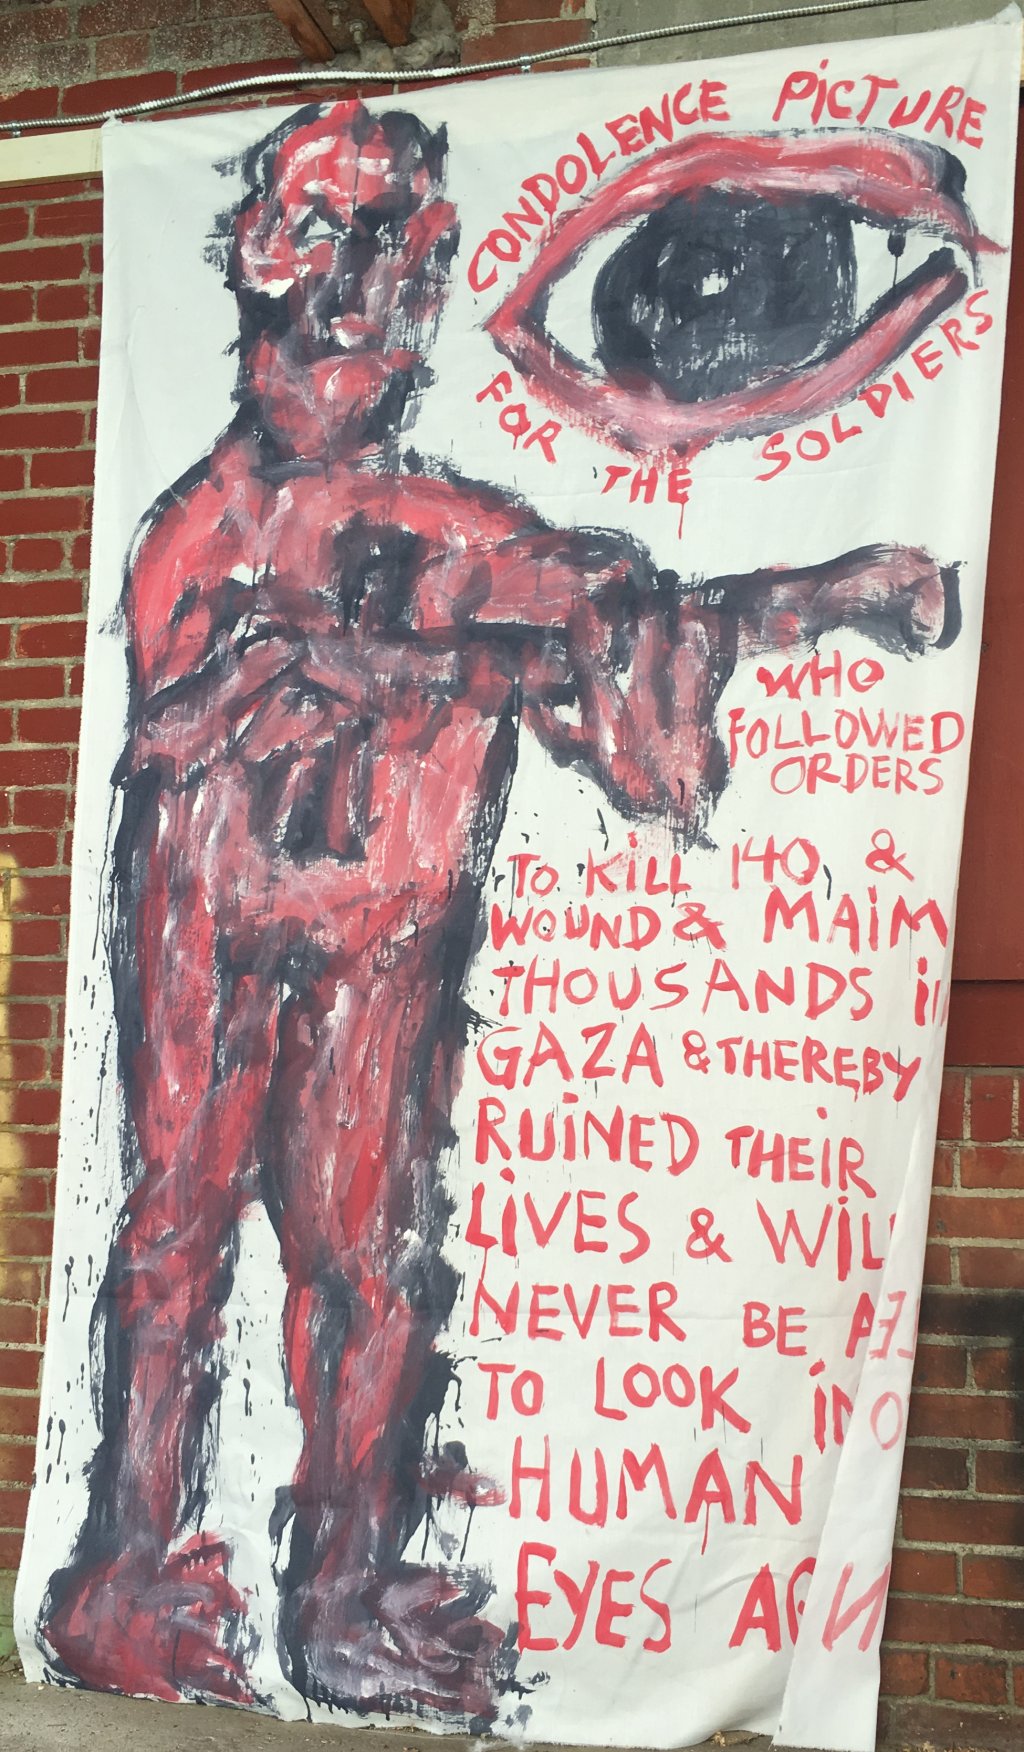 CONDOLENCE PiCTURE
FOR THE SOLDIERS
WHO
FOLLOWED
ORDERS
TO KiLL 140, &
WOUND & MAiM
THOUSANDS
GAZA & THEREBY
RUiNED THEiR
LiVES & WiL
NEVER BE
TO LOOK
HUMAN
EYES